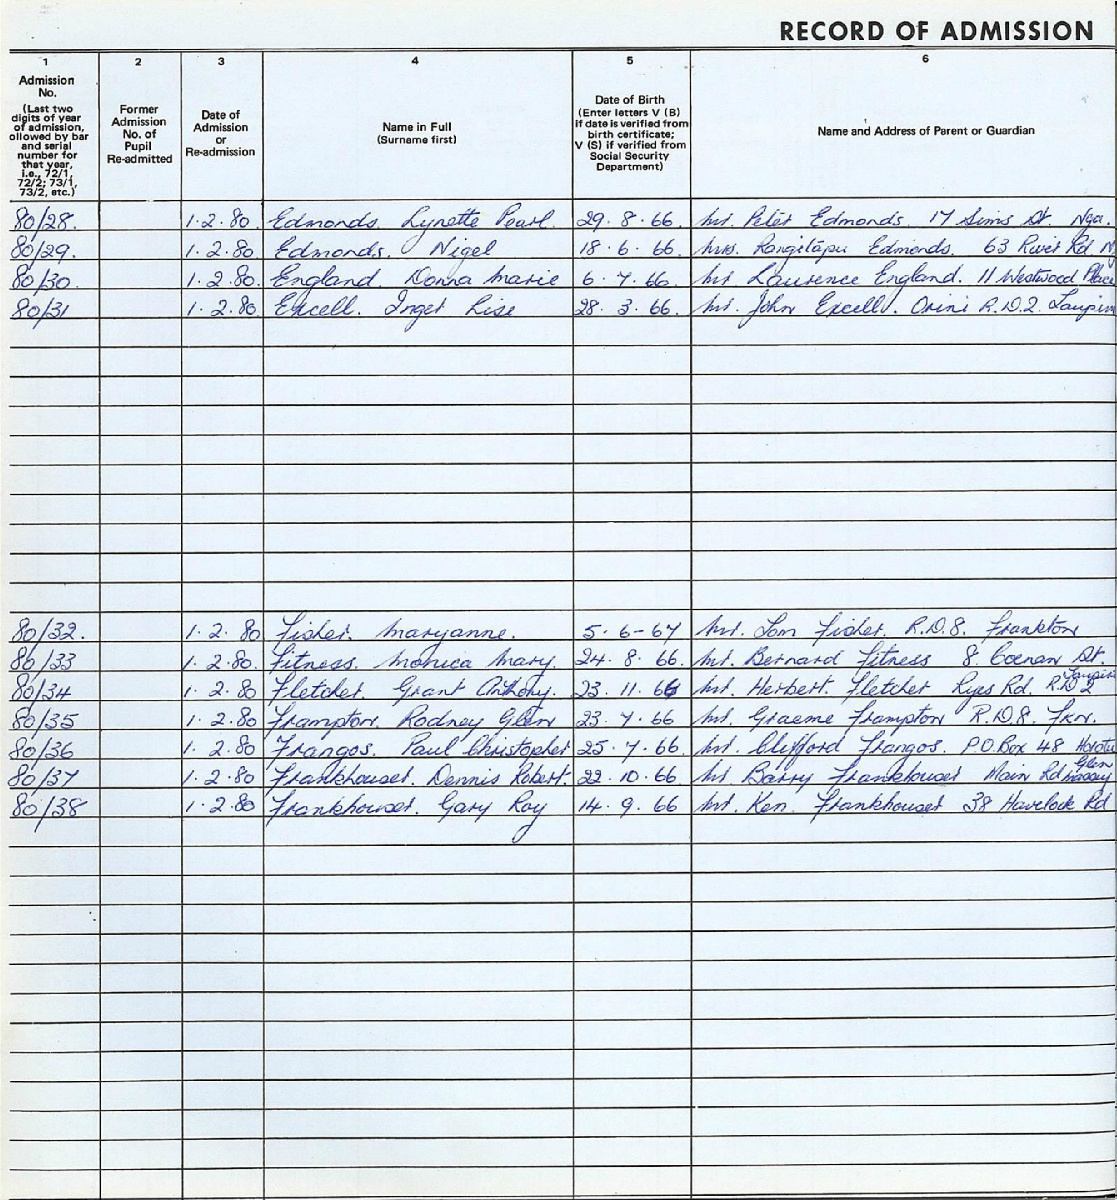 RECORD OF ADMISSION
1 2 3 4 5 6
Admission No. (Last two digits of year of admission, ollowed by bar and serial number for that year, i.e., 72/1, 72/2; 73/1, 73/2, etc.)
Former Admission No. of Pupil Re-admitted
Date of Admission or Re-admission
Name in Full (Surname first)
Date of Birth (Enter letters V (B) if date is verified from birth certificate; V (S) if verified from Social Security Department)
Name and Address of Parent or Guardian
80/28. 1·2·80. Edmonds. Lynette Pearl. 29·8·66. Mr. Peter Edmonds. 17 Sims St Nga
80/29. 1·2·80. Edmonds. Nigel 18·6·66. Mrs. Rangitapu Edmonds. 63 River Rd N
80/30. 1·2·80. England. Donna Marie 6·7·66. Mr Laurence England. 11 Westwood Place
80/31 1·2·80. Excell. Inger Lise 28·3·66. Mr. John Excell. Orini R.D.2. Taupiri
80/32. 1·2·80 Fisher. Maryanne. 5·6-67 Mr. Tom Fisher. R.D.8. Frankton
80/33 1·2·80. Fitness. Monica Mary. 24·8·66. Mr. Bernard Fitness 8. St.
80/34 1·2·80. Fletcher. Grant Anthony. 23·11·66 Mr. Herbert. Fletcher Rd. R.D 2 Taupiri
80/35 1·2·80 Frampton. Rodney Glen 23·7·66 Mr. Graeme Frampton R.D.8. Fkn.
80/36 1·2·80 Frangos. Paul Christopher 25·7·66 Mr. Clifford Frangos. P.O.Box 48 Horotiu
80/37 1·2·80 Frankhouser. Dennis Robert. 22·10·66 Mr Barry Frankhouser Main Rd Glen Massey
80/38 1·2·80 Frankhouser. Gary Roy 14·9·66 Mr. Ken. Frankhouser 38 Havelock Rd